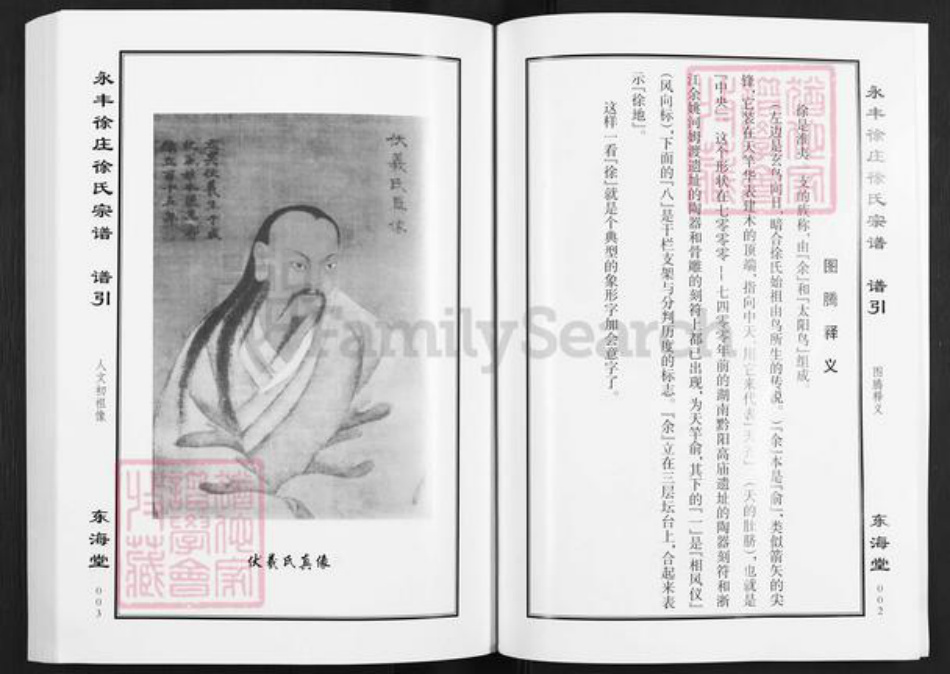 永丰徐庄徐氏宗谱 谱引
图腾释义
东海堂
002
图腾释义
徐是淮夷一支的族称,由『余』和『太阳鸟』组成。
(左边是玄鸟向日,暗合徐氏始祖由鸟所生的传说。)『余』本是『俞』,类似箭矢的尖
锋,它装在天竿华表建木的顶端,指向中天,用它来代表『天齐』(天的肚脐),也就是
『中央』。这个形状在七零零零—七四零零年前的湖南黔阳高庙遗址的陶器刻符和浙
江余姚河姆渡遗址的陶器和骨雕的刻符上都已出现,为天竿俞,其下的『一』是『相风仪』
(风向标),下面的『八』是干栏支架与分判历度的标志。『余』立在三层坛台上,合起来表
示『徐地』。
这样一看『徐』就是个典型的象形字加会意字了。
永丰徐庄徐氏宗谱 谱引
人文初祖像
东海堂
003
伏羲氏真像
FamilySearch